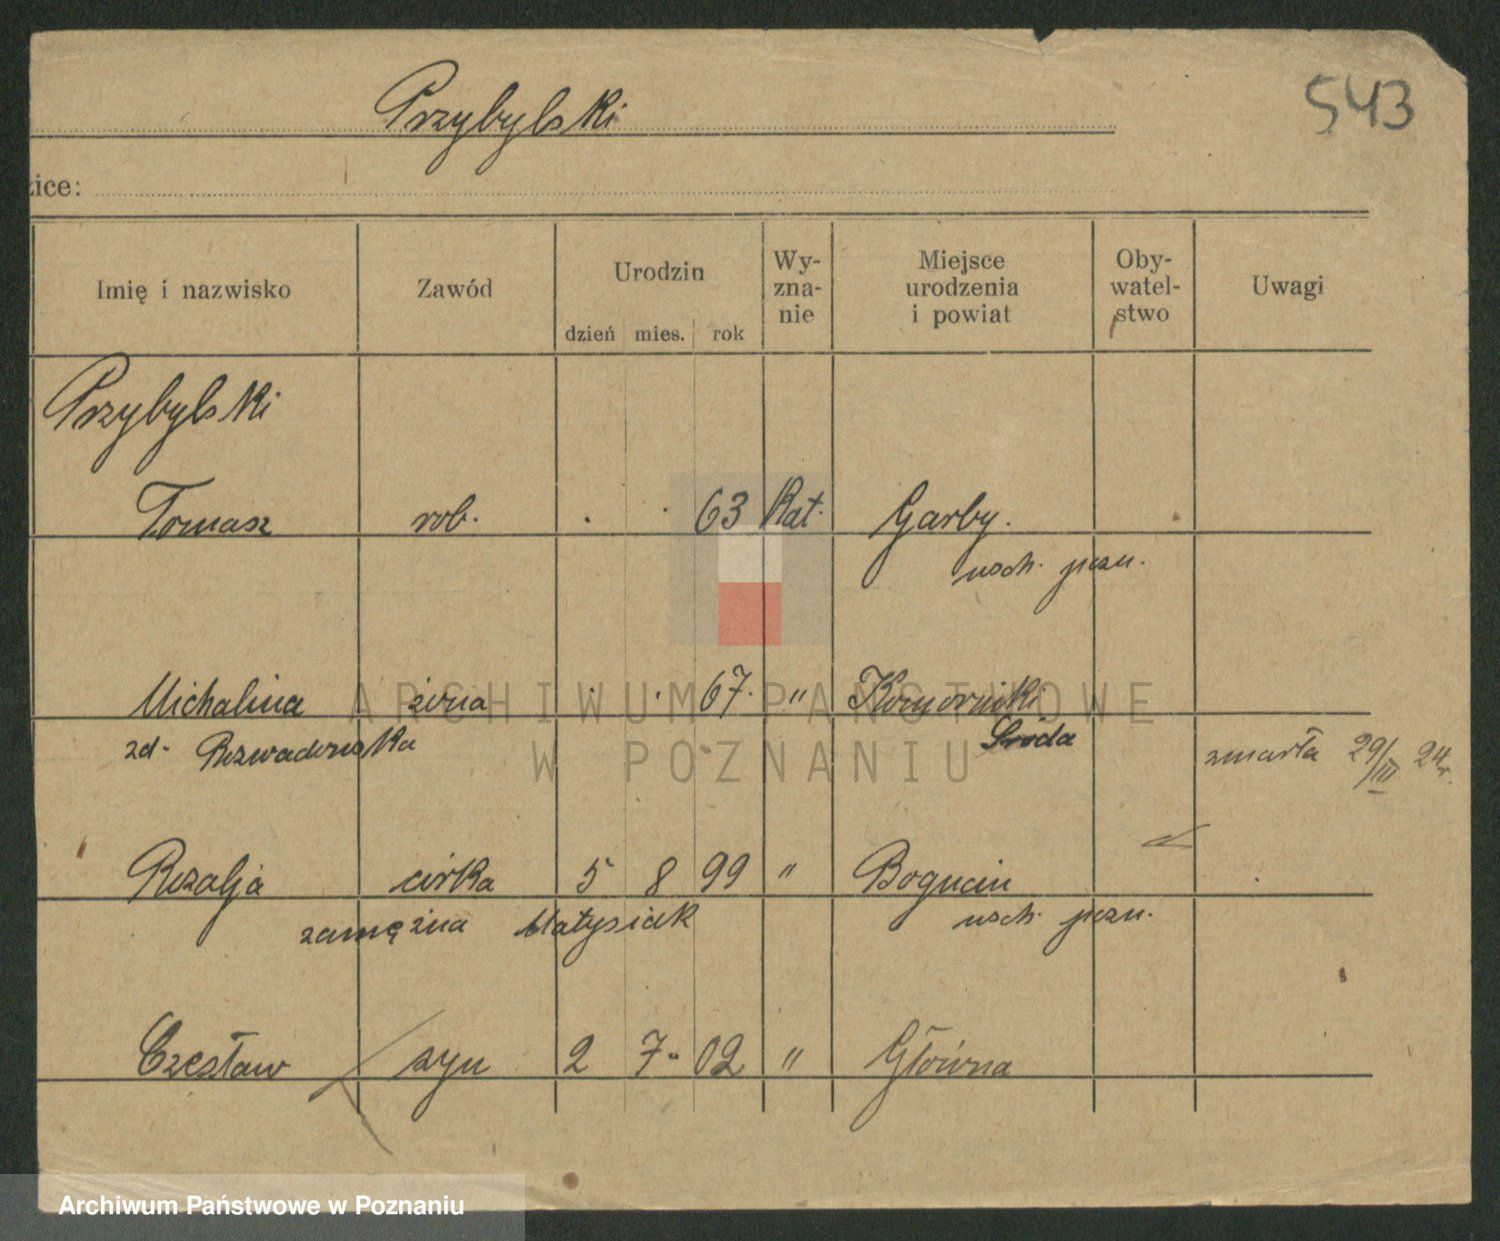 Przybylski
543
zice:
Imię i nazwisko
Zawód
Urodzin
dzień mies. rok
Wy-
zna-
nie
Miejsce
urodzenia
i powiat
Oby-
watel-
stwo
Uwagi
Przybylski
Tomasz rob. . . 63 Kat. Garby.
wsch. pozn.
Michalina żona . . 67. " Komorniki
zd. Rozwadowska Środa zmarła 29/III 24r.
Rozalja córka 5 8 99 " Bogucin
zamężna Matysiak wsch. pozn.
Czesław syn 2 7. 02 " Główna
ARCHIWUM PAŃSTWOWE
W POZNANIU
Archiwum Państwowe w Poznaniu